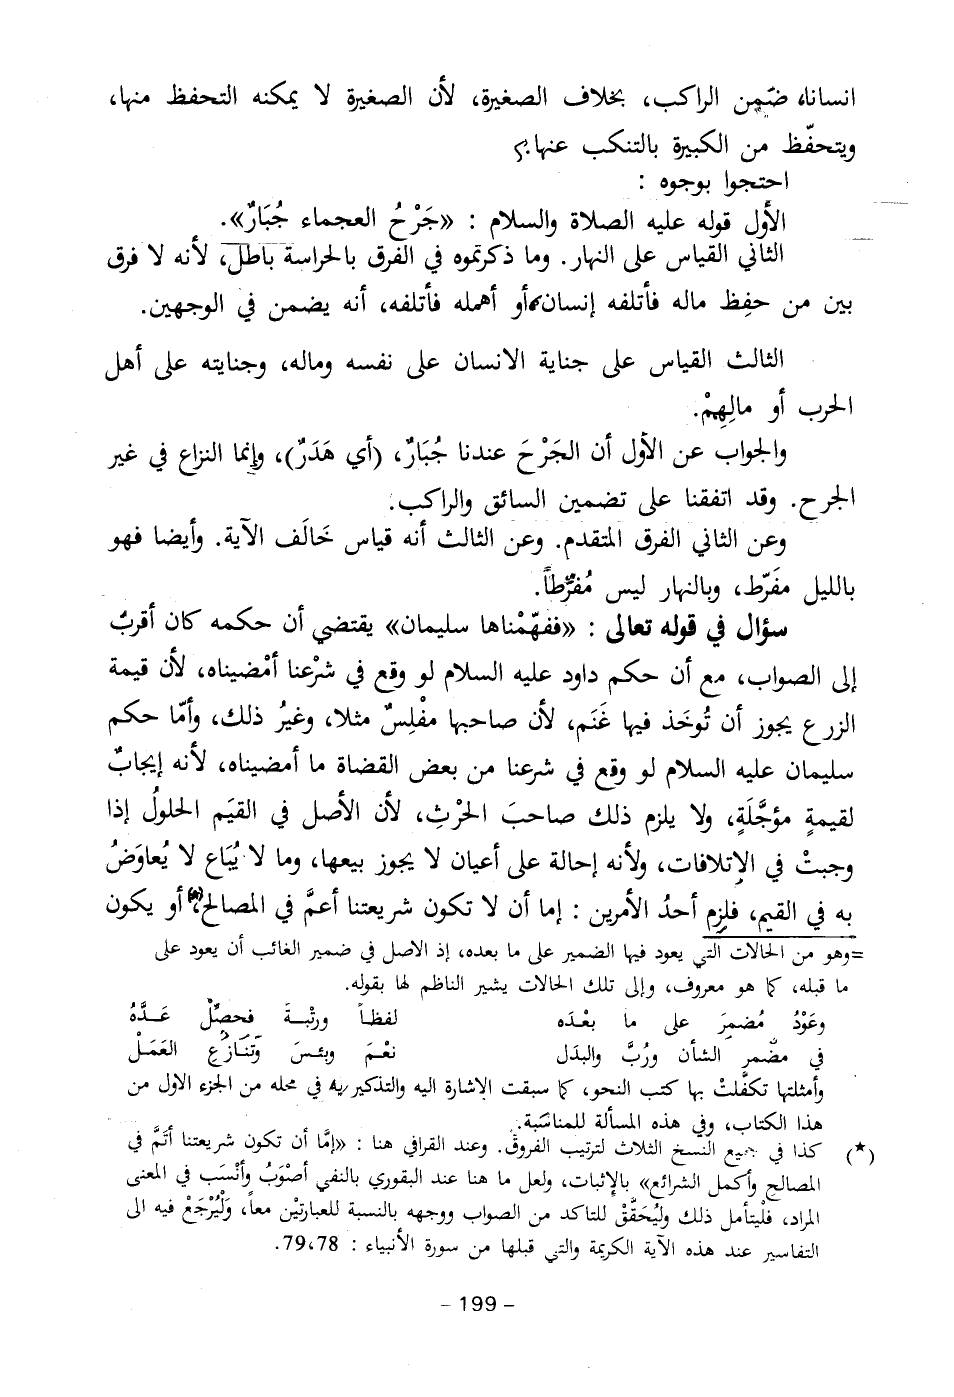 انسانا، ضَمِن الراكب، بخلاف الصغيرة، لأن الصغيرة لا يمكنه التحفظ منها،
ويتحفّظ من الكبيرة بالتنكب عنها.
احتجوا بوجوه :
الأول قوله عليه الصلاة والسلام : «جَرْحُ العجماء جُبَارٌ».
الثاني القياس على النهار. وما ذكرتموه في الفرق بالحراسة باطل، لأنه لا فرق
بين من حفِظ ماله فأتلفه إنسان، أو أهمله فأتلفه، أنه يضمن في الوجهين.
الثالث القياس على جناية الانسان على نفسه وماله، وجنايته على أهل
الحرب أو مالِهِمْ.
والجواب عن الأول أن الجَرْحَ عندنا جُبَارٌ، (أي هَدَرٌ)، وإنما النزاع في غير
الجرح. وقد اتفقنا على تضمين السائق والراكب.
وعن الثاني الفرق المتقدم. وعن الثالث أنه قياس خَالَف الآية. وأيضا فهو
بالليل مفَرّط، وبالنهار ليس مُفرِّطاً.
سؤال في قوله تعالى : «ففهّمْناها سليمان» يقتضي أن حكمه كان أقربَ
إلى الصواب، مع أن حكم داود عليه السلام لو وقع في شرْعنا أمْضيناه، لأن قيمة
الزرع يجوز أن تُوخَذ فيها غَنَم، لأن صاحبها مفْلِسٌ مثلا، وغيرُ ذلك، وأمّا حكم
سليمان عليه السلام لو وقع في شرعنا من بعض القضاة ما أمضيناه، لأنه إيجابٌ
لقيمةٍ مؤجَّلَةٍ، ولا يلزم ذلك صاحبَ الحَرْثِ، لأن الأصل في القيَم الحلولُ إذا
وجبتْ في الإتلافات، ولأنه إحالة على أعيان لا يجوز بيعها، وما لا يُبَاع لا يُعاوَضُ
به في القيم، فلزِم أحدُ الأمرين : إما أن لا تكون شريعتنا أعمَّ في المصالح(*) أو يكون
=وهو من الحالات التي يعود فيها الضمير على ما بعده، إذ الاصل في ضمير الغائب أن يعود على
ما قبله، كما هو معروف، وإلى تلك الحالات يشير الناظم لها بقوله.
وعَوْدُ مُضمَرَ على ما بعْدَه لفظاً ورتْبــةً فحصِّلْ عَــدَّهُ
في مضْمر الشأن ورُبَّ والبدَل نعْمَ وبئسَ وتنَازُعِ العَمَلْ
وأمثلتها تكفَّلتْ بها كتب النحو، كما سبقت الإشارة اليه والتذكير به في محله من الجزء الاول من
هذا الكتاب، وفي هذه المسألة للمناسَبة.
(*) كذا في جميع النسخ الثلاث لترتيب الفروق. وعند القرافي هنا : «إمَّا أن تكون شريعتنا أتَمَّ في
المصالح وأكمل الشرائع» بالإثبات، ولعل ما هنا عند البقوري بالنفي أصْوَبُ وأنْسَب في المعنى
المراد، فلْيتأمل ذلك ولْيُحقَّقْ للتاكد من الصواب ووجهه بالنسبة للعبارتيْن معاً، ولْيُرْجَعْ فيه الى
التفاسير عند هذه الآية الكريمة والتي قبلها من سورة الأنبياء : 79،78.
- 199 -